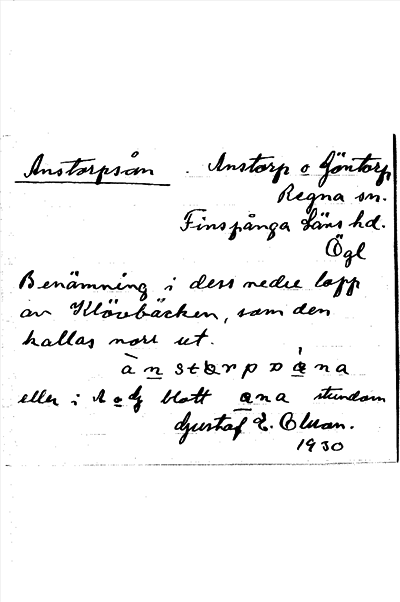 Anstorpsån . Anstorp o Jöntorp
Regna sn.
Finspånga Läns hd.
Ögl
Benämning i dess nedre lopp
av Klövbäcken, som den
kallas norr ut.
eller i A o J blott ana stundom
Gustaf E. Olsson.
1930